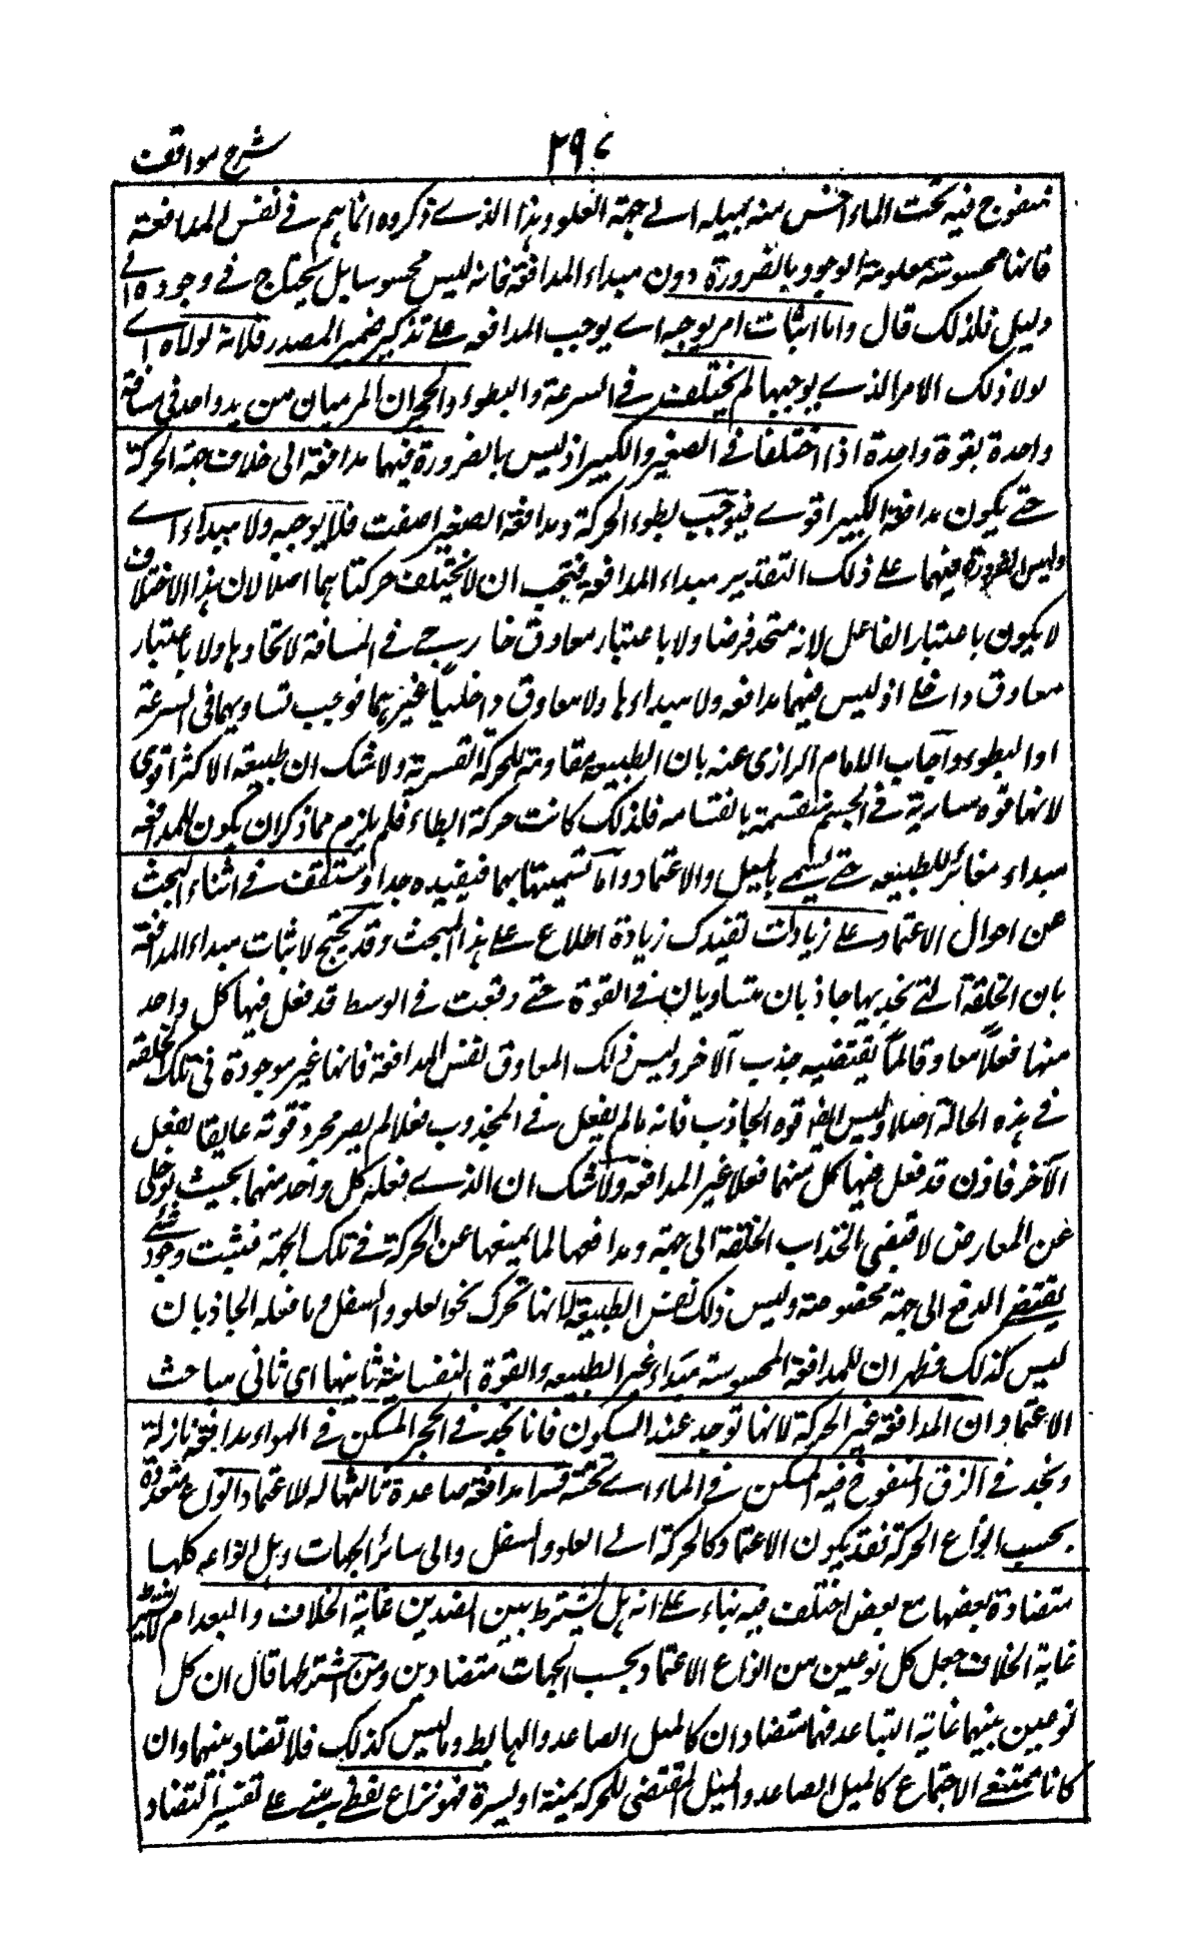 شرح مواقف
٢٩٤
منفوخ فيه تحت الماء احس منه بميله الى جهة العلو وهذا الذي ذكروه انما هم في نفس المدافعة
فانها محسوسة معلومة الوجود بالضرورة دون مبداء المدافعة فانه ليس محسوسا بل يحتاج في وجوده الى
دليل فلذلك قال واما اثبات امر يوجبه اي يوجب المدافعه على تذكير ضمير المصدر فلانه لولاه اي
لولا ذلك الامر الذي يوجبها لم يختلف في السرعة والبطوء والحجران المرميان من يد واحد في مسافة
واحدة بقوة واحدة اذا اختلفا في الصغير والكبير اذ ليس بالضرورة فيهما مدافعة الى خلاف جهة الحركة
حتى يكون مدافعة الكبير اقوى فيوجب بطوء الحركة ومدافعة الصغير اضعف فلا يوجبه ولا مبداء اي
وليس بالضرورة فيهما على ذلك التقدير مبداء المدافعه فيجب ان لا يختلف حركتاهما اصلا لان هذا الاختلاف
لا يكون باعتبار الفاعل لانه متحد فرضا ولا باعتبار معاوق خارجي في المسافة لاتحادها ولا باعتبار
معاوق داخلي اذ ليس فيهما مدافعه ولا مبداءها ولا معاوق داخليا غيرهما فوجب تساويهما في السرعة
او البطوء واجاب الامام الرازى عنه بان الطبيعه مقاومة للحركة القسرية ولا شك ان طبيعة الاكثر اقوى
لانها قوه سارية في الجسم منقسمة بانقسامه فلذلك كانت حركة ابطاء فلم يلزم مما ذكر ان يكون للمدافعه
مبداء مغائر للطبيعه حتى يسمى بالميل والاعتماد واما تسميتها بهما فبعيده جدا وستقف في اثناء البحث
عن احوال الاعتماد على زيادات تفيدك زيادة اطلاع على هذا المبحث وقد يحتج لاثبات مبداء المدافعة
بان الحلقة التي يجذبها جاذبان متساويان في القوة حتى وقعت في الوسط قد فعل فيها كل واحد
منهما فعلا معاوقا لما يقتضيه جذب الآخر وليس ذلك المعاوق نفس المدافعة فانها غير موجودة في تلك الحلقة
في هذه الحالة اصلا وليس ايضا قوه الجاذب فانه مالم يفعل في المجذوب فعلا لم يصر مجرد قوته عايقا لفعل
الآخر فاذن قد فعل فيها كل منهما فعلا غير المدافعه ولا شك ان الذي فعله كل واحد منهما بحيث لو خلى
عن المعارض لاقتضى انجذاب الحلقة الى جهة ومدافعها لما يمنعها عن الحركة في تلك الجهة فثبت وجود شئ
يقتضى الدفع الى جهة مخصوصة وليس ذلك نفس الطبيعة لانها تحرك نحو العلو والسفل وما فعله الجاذبان
ليس كذلك فظهر ان للمدافعة المحسوسة مبداء غير الطبيعه والقوة النفسانية ثانيها اى ثانى مباحث
الاعتماد ان المدافعة غير الحركة لانها توجد عند السكون فانا نجد في الحجر المسكن في الهواء مدافعة نازلة
ونجد في الزق المنفوخ فيه المسكن في الماء اي تحته قسرا مدافعة صاعدة ثالثها له للاعتماد انواع متعددة
بحسب انواع الحركة فقد يكون الاعتماد كالحركة الى العلو والسفل والى سائر الجهات وهل انواعه كلها
متضادة بعضها مع بعض اختلف فيه بناء على انه هل يشترط بين الضدين غاية الخلاف والبعد ام لا فمن لم يشترط
غاية الخلاف جعل كل نوعين من انواع الاعتماد بحسب الجهات متضادين ومن اشترطها قال ان كل
نوعين بينهما غاية التباعد فهما متضادان كالميل الصاعد والهابط وما ليس كذلك فلا تضاد بينهما وان
كانا ممتنعى الاجتماع كالميل الصاعد والميل المقتضى للحركة يمنة او يسرة فهو نزاع لفظي مبني على تفسير التضاد